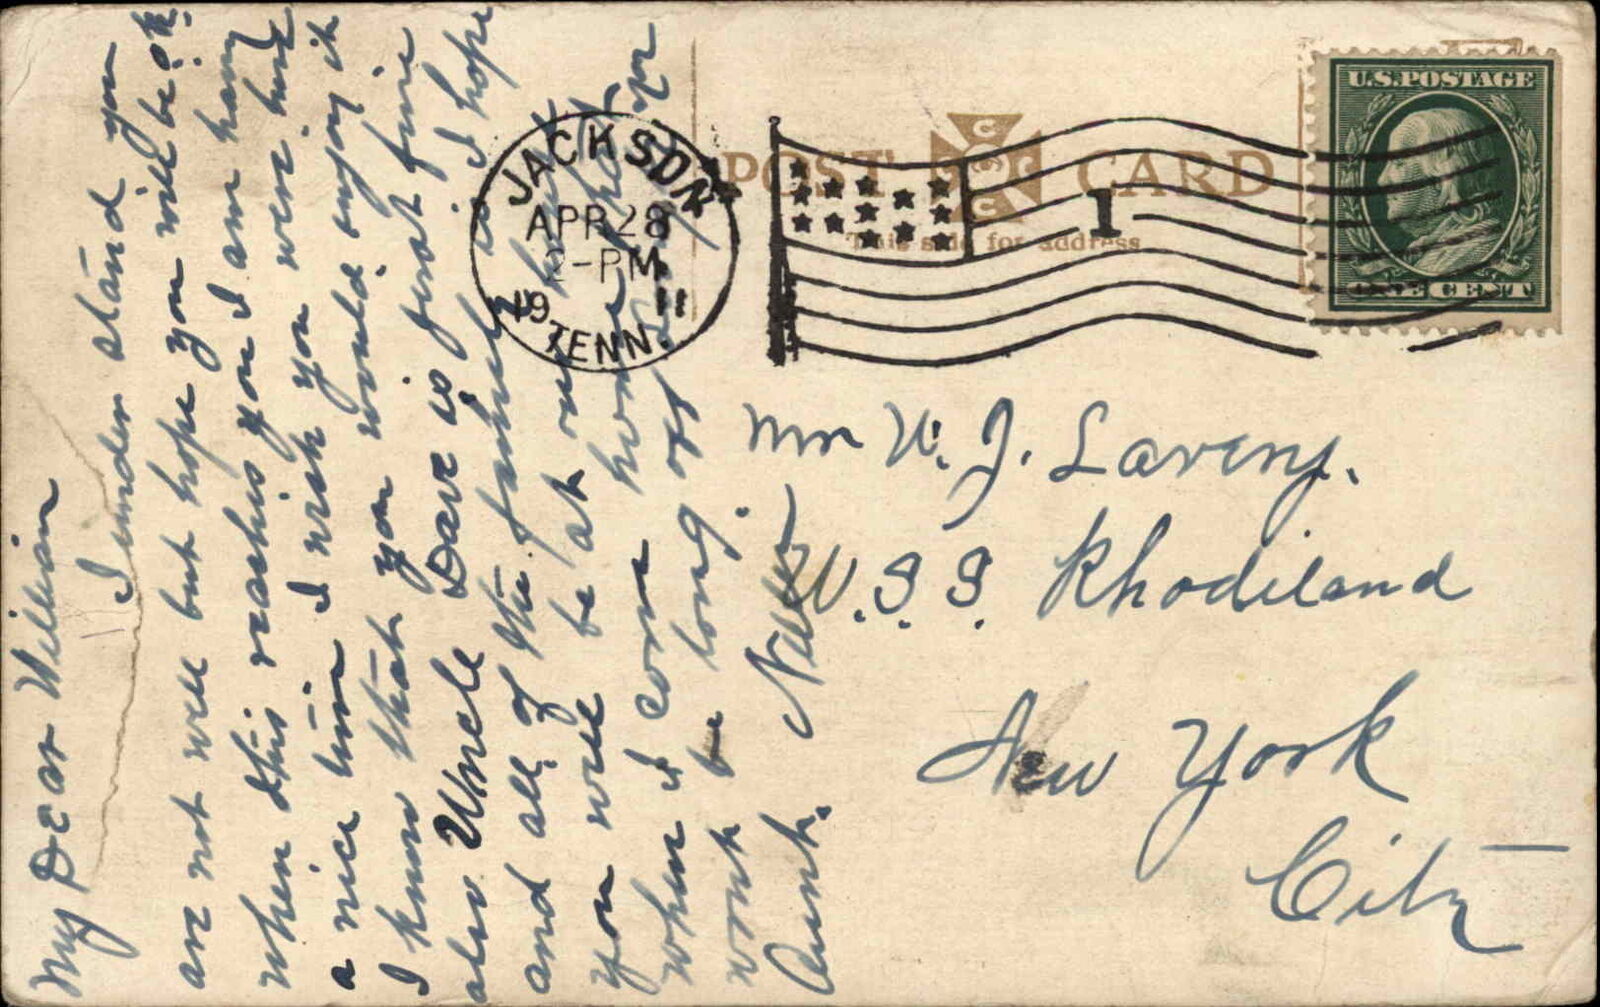 My Dear William
I under stand you
are not well but hope you will be o.k.
when this reaches you I am having
a nice time I wish you were here
I know that you would enjoy it
also Uncle Dave is first fine
and all of the family is I hope
you will be at our
when I come home
wont be long off.
Aunt Nellie
JACKSON
APR 28
2-PM
19 11
TENN.
POST CARD
This side for address
1
U.S. POSTAGE
ONE CENT
Mr W. J. Lavery.
U.S.S. Rhodiland
New York
City